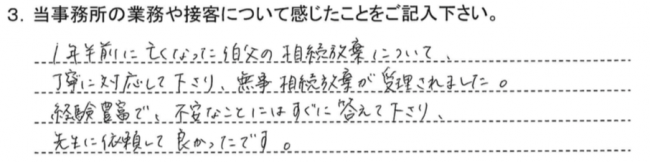 3. 当事務所の業務や接客について感じたことをご記入下さい。
1年半前に亡くなった伯父の相続放棄について、
丁寧に対応して下さり、無事相続放棄が受理されました。
経験豊富で、不安なことにはすぐに答えて下さり、
先生に依頼して良かったです。